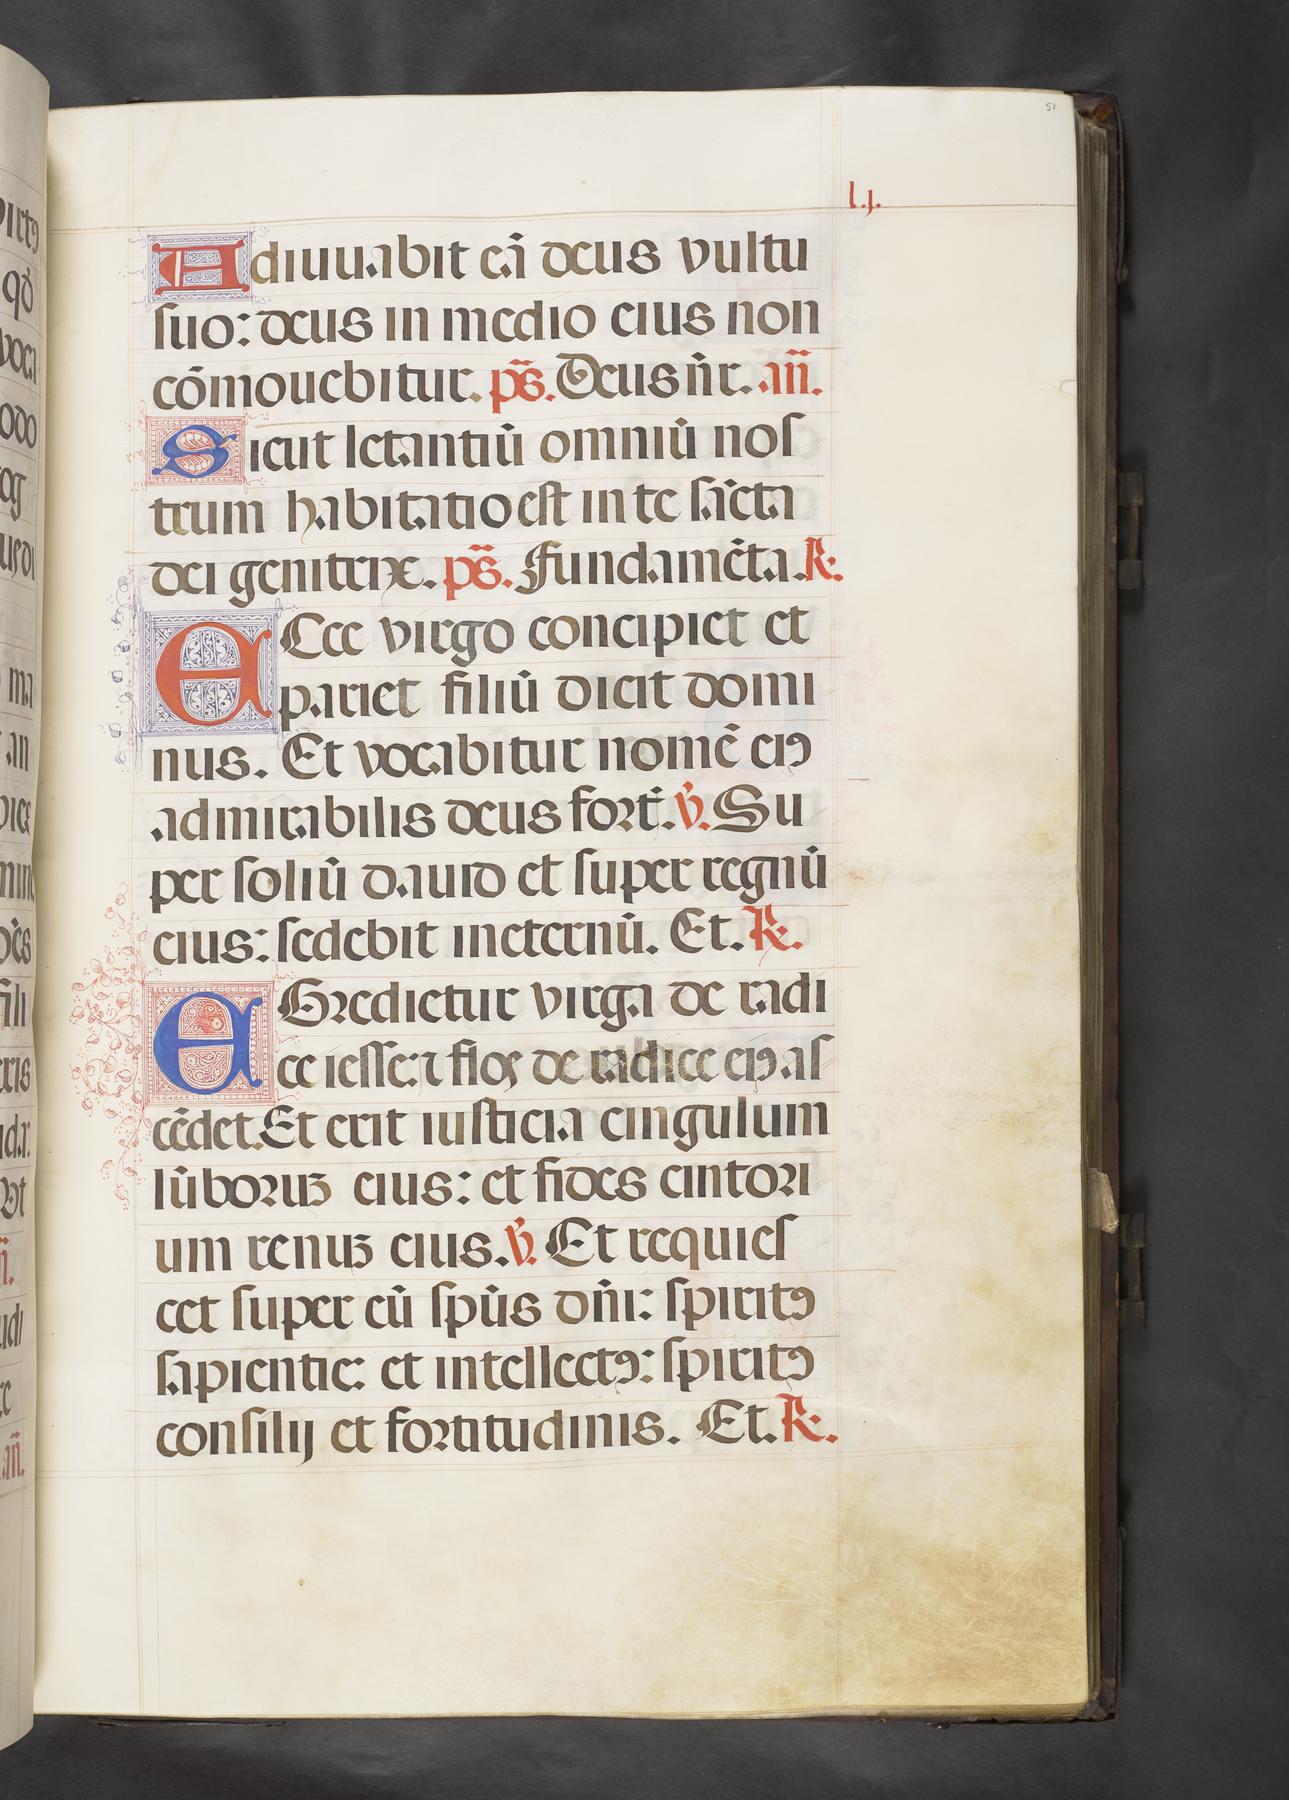 51
l.j.
Adiuuabit eā deus vultu
suo: deus in medio eius non
cōmouebitur. ps̄. Deus nr̄. an̄.
Sicut letantiū omniū nos
trum habitatio est in te sācta
dei genitrix. ps̄. Fundamēta. ℟.
ECce virgo concipiet et
pariet filiū dicit domi
nus. Et vocabitur nomē eiꝰ
admirabilis deus fort̄. ℣. Su
per soliū dauid et super regnū
eius: sedebit ineternū. Et. ℟.
EGredietur virga de radi
ce iesse: ⁊ flos de radice eiꝰ as
cēdet. Et erit iusticia cingulum
lūboruꝫ eius: et fides cintori
um renuꝫ eius. ℣. Et requies
cet super eū spūs dn̄i: spiritꝰ
sapientie: et intellectꝰ: spiritꝰ
consilij et fortitudinis. Et. ℟.